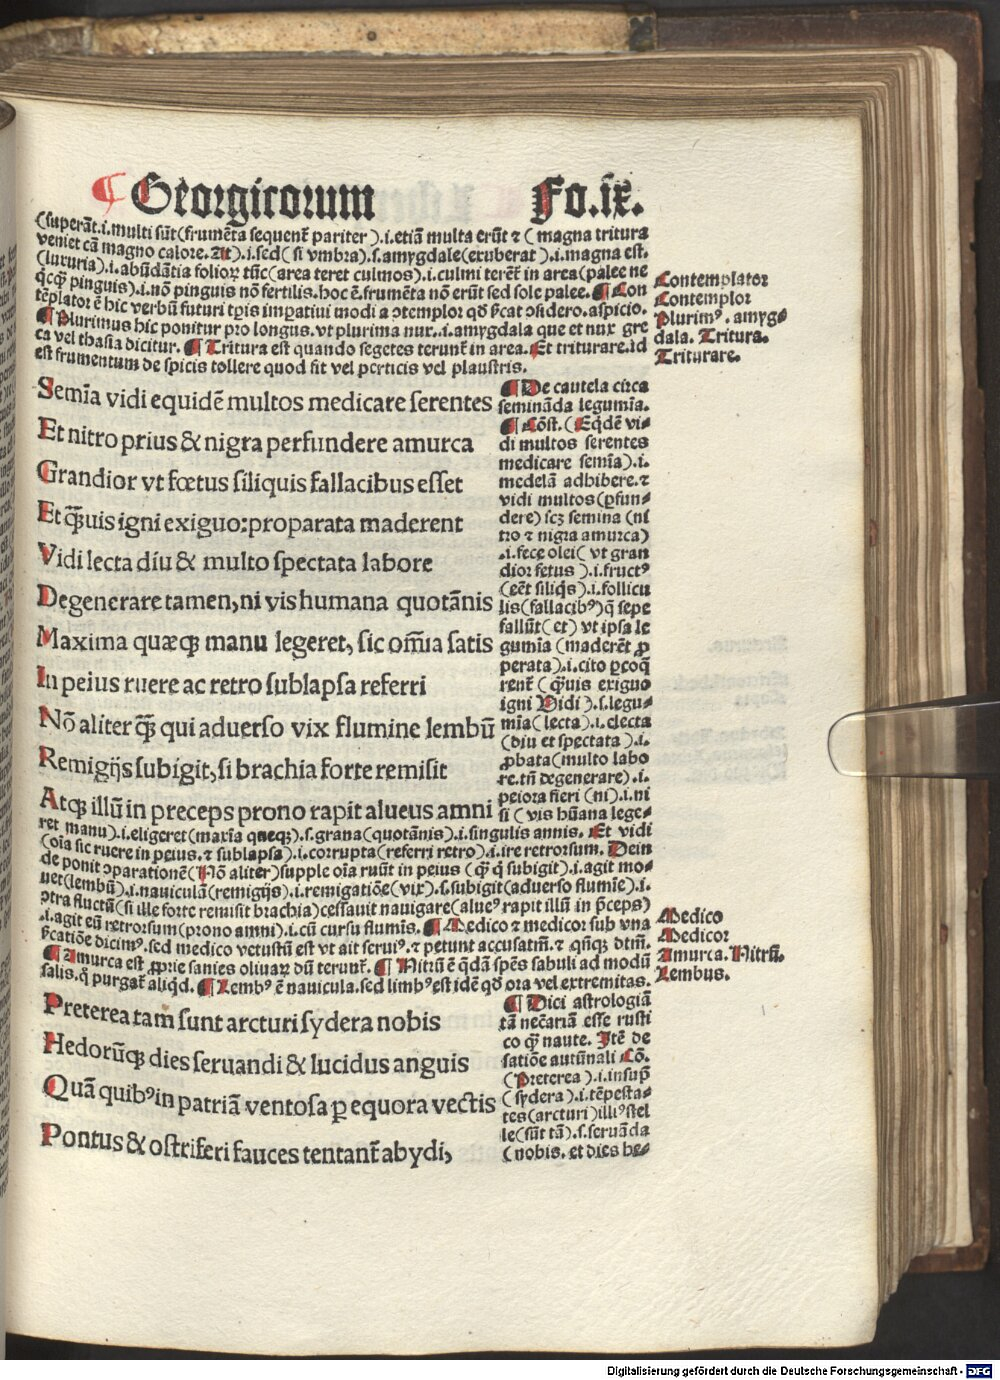 ¶ Georgicorum Fo.ix.
(superāt.i.multi sūt(frumēta sequenƭ pariter).i.etiā multa erūt ⁊ (magna tritura
veniet cā magno calore. At).i.sed(si vmbra).s.amygdale(exuberat).i.magna est.
(luxuria).i.abūdātia folioꝝ tūc(area teret culmos).i.culmi terēƭ in area(palee ne
qcqꝫ pinguis).i.nō pinguis nō fertilis.hoc ē.frumēta nō erūt sed sole palee. ¶ Con
tēplator ē hic verbū futuri tꝑis imꝑatiui modi a ↄtemplor qd̄ ſcat ↄsidero.aspicio.
¶ Plurimus hic ponitur pro longus.vt plurima nux.i.amygdala que et nux gre
ca vel thasia dicitur. ¶ Tritura est quando segetes terunƭ in area. Et triturare.id
est frumentum de spicis tollere quod fit vel perticis vel plaustris.
Contemplator
Contemplor
Plurimꝰ.amyg-
dala. Tritura.
Triturare.
Semīa vidi equidē multos medicare serentes
Et nitro prius & nigra perfundere amurca
Grandior vt fœtus siliquis fallacibus esset
Et q̄uis igni exiguo:properata maderent
Vidi lecta diu & multo spectata labore
Degenerare tamen,ni vis humana quotānis
Maxima quæqꝫ manu legeret, sic om̄ia fatis
In peius ruere ac retro sublapsa referri
Nō aliter q̄ꝫ qui aduerso vix flumine lembū
Remigijs subigit,si brachia forte remisit
Atqꝫ illū in preceps prono rapit alueus amni
¶ De cautela circa
semināda legumīa.
¶ Cōst. (Eqdē vi-
di multos serentes
medicare semīa).i.
medelā adhibere.⁊
vidi multos (ꝑfun-
dere) scꝫ semina (ni
tro ⁊ nigra amurca)
.i.fece olei( vt gran
dior fetus ).i.fructꝰ
(eēt siliqs).i.follicu
lis(fallacibꝰ)q̄ sepe
fallūt( et) vt ipsa le
gumīa (maderēƭ ꝓ
perata).i.cito ꝑcoq̄
renƭ (q̄uis exiguo
igni Vidi ).s.legu-
mīa( lecta).i.electa
(diu et spectata ).i.
ꝓbata(multo labo
re.tn̄ degenerare).i.
peiora fieri (ni).i.ni
si ( vis hūana lege-
ret manu).i.eligeret(maxīa queqꝫ).s.grana(quotānis).i.singulis annis. Et vidi
(oīa sic ruere in peius.⁊ sublapsa).i.corrupta(referri retro).i.ire retrorsum. Dein
de ponit ↄparationē(Nō aliter)supple oīa ruūt in peius (q̄ q̄ subigit).i.agit mo-
uet(lembū).i.nauiculā(remigijs).i.remigatiōe(vix).s.subigit(aduerso flumīe).i.
ↄtra fluctū(si ille forte remisit brachia)cessauit nauigare(alueꝰ rapit illū in p̄ceps)
.i.agit eū retrorsum(prono amni).i.cū cursu flumīs. ¶ Medico ⁊ medicor sub vna
ſcatiōe dicimꝰ.sed medico vetustū est vt ait seruiꝰ.⁊ petunt accusatm̄.⁊ qn̄qꝫ dtm̄.
¶ Amurca est ꝓprie sanies oliuaꝝ dū terunƭ. ¶ Nitrū ē q̄dā spēs sabuli ad modū
salis.q̄ purgaƭ aliqd. ¶ Lembꝰ ē nauicula.sed limbꝰ est idē qd̄ ora vel extremitas.
Medico
Medicor
Amurca. Nitrū.
Lembus.
Preterea tam sunt arcturi sydera nobis
Hedorūqꝫ dies seruandi & lucidus anguis
Quā quibꝰ in patriā ventosa ꝑ equora vectis
Pontus & ostriferi fauces tentanƭ abydi,
¶ Dici astrologiā
tā nec̄ariā esse rusti
co q̄ naute. Itē de
satiōe autūnali Cō.
(Preterea ).i.insuꝑ
(sydera).i.tēpesta-
tes(arcturi)illiꝰ stel
le(sūt tā).s.seruāda
(nobis. et dies he-
Digitalisierung gefördert durch die Deutsche Forschungsgemeinschaft - DFG